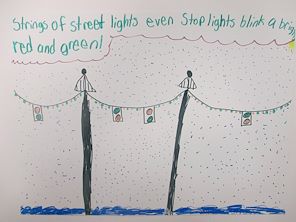 Strings of street lights even stop lights blink a
red and green!